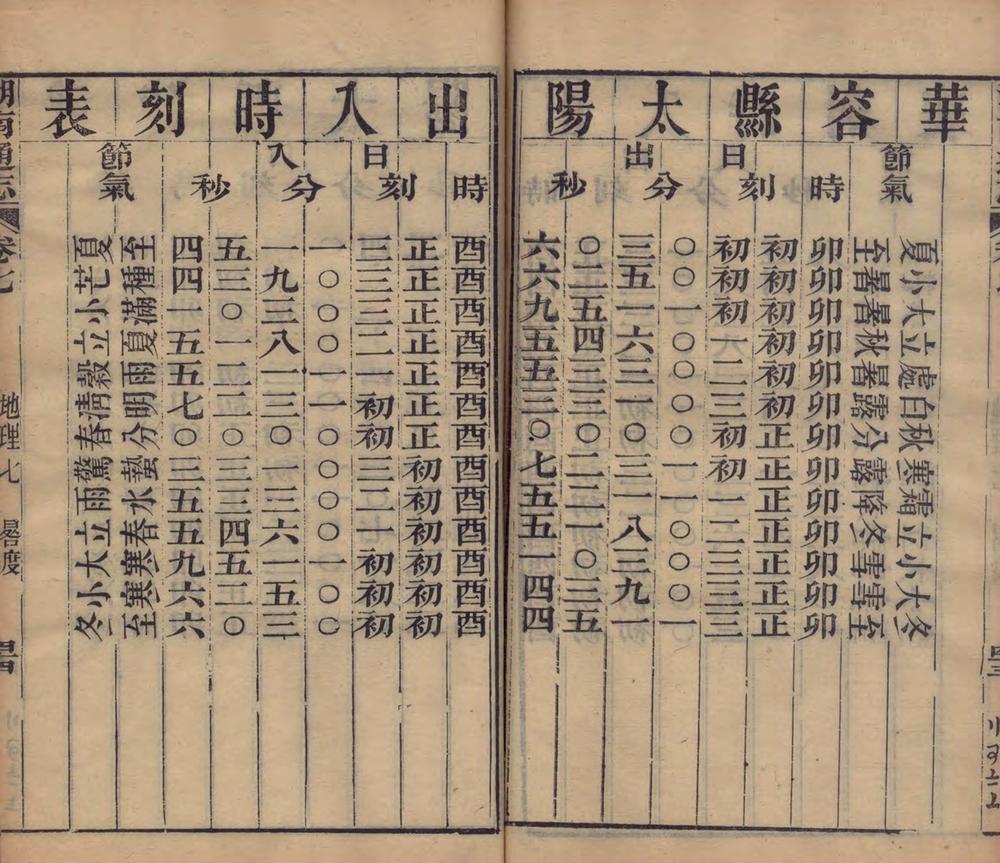 華容縣太陽
節氣
日出
時
刻
分
秒
夏小大立處白秋寒霜立小大冬
至暑暑秋暑露分露降冬雪雪至
卯卯卯卯卯卯卯卯卯卯卯卯卯
初初初初初初正正正正正正正
初初初一二三初初一二三三三
〇〇一〇〇〇〇一一〇〇〇一
三五一六三一〇三一八三九一
〇二五四三三〇二二一〇三五
六六九五五三〇七五五一四四
出入時刻表
日入
時
刻
分
秒
節氣
酉酉酉酉酉酉酉酉酉酉酉酉酉
正正正正正正正初初初初初初
三三三二一初初三二一初初初
一〇〇〇一一〇〇〇〇一〇〇
一九三八一三〇一三六一五三
五三〇一二二〇三三四五二〇
四四一五五七〇三五五九六六
至種滿夏雨明分蟄水春寒寒至
夏芒小立穀清春驚雨立大小冬
湖南通志 卷七 地理七 晷度